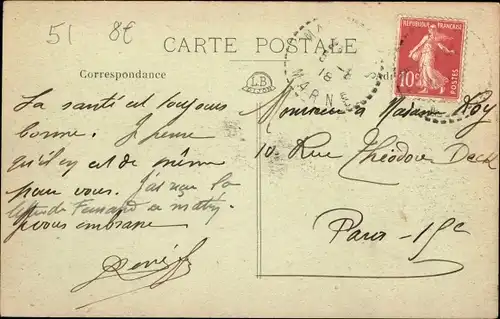 51 8E
CARTE POSTALE
Correspondance
LB
MARNE
18
RÉPUBLIQUE FRANÇAISE
10c
POSTES
La santé est toujours
bonne. Je pense
qu'il en est de même
pour vous. J'ai reçu la
lettre de Fernand ce matin.
Je vous embrasse
René
Monsieur & Madame Roy
10 Rue Théodore Deck
Paris - 15e